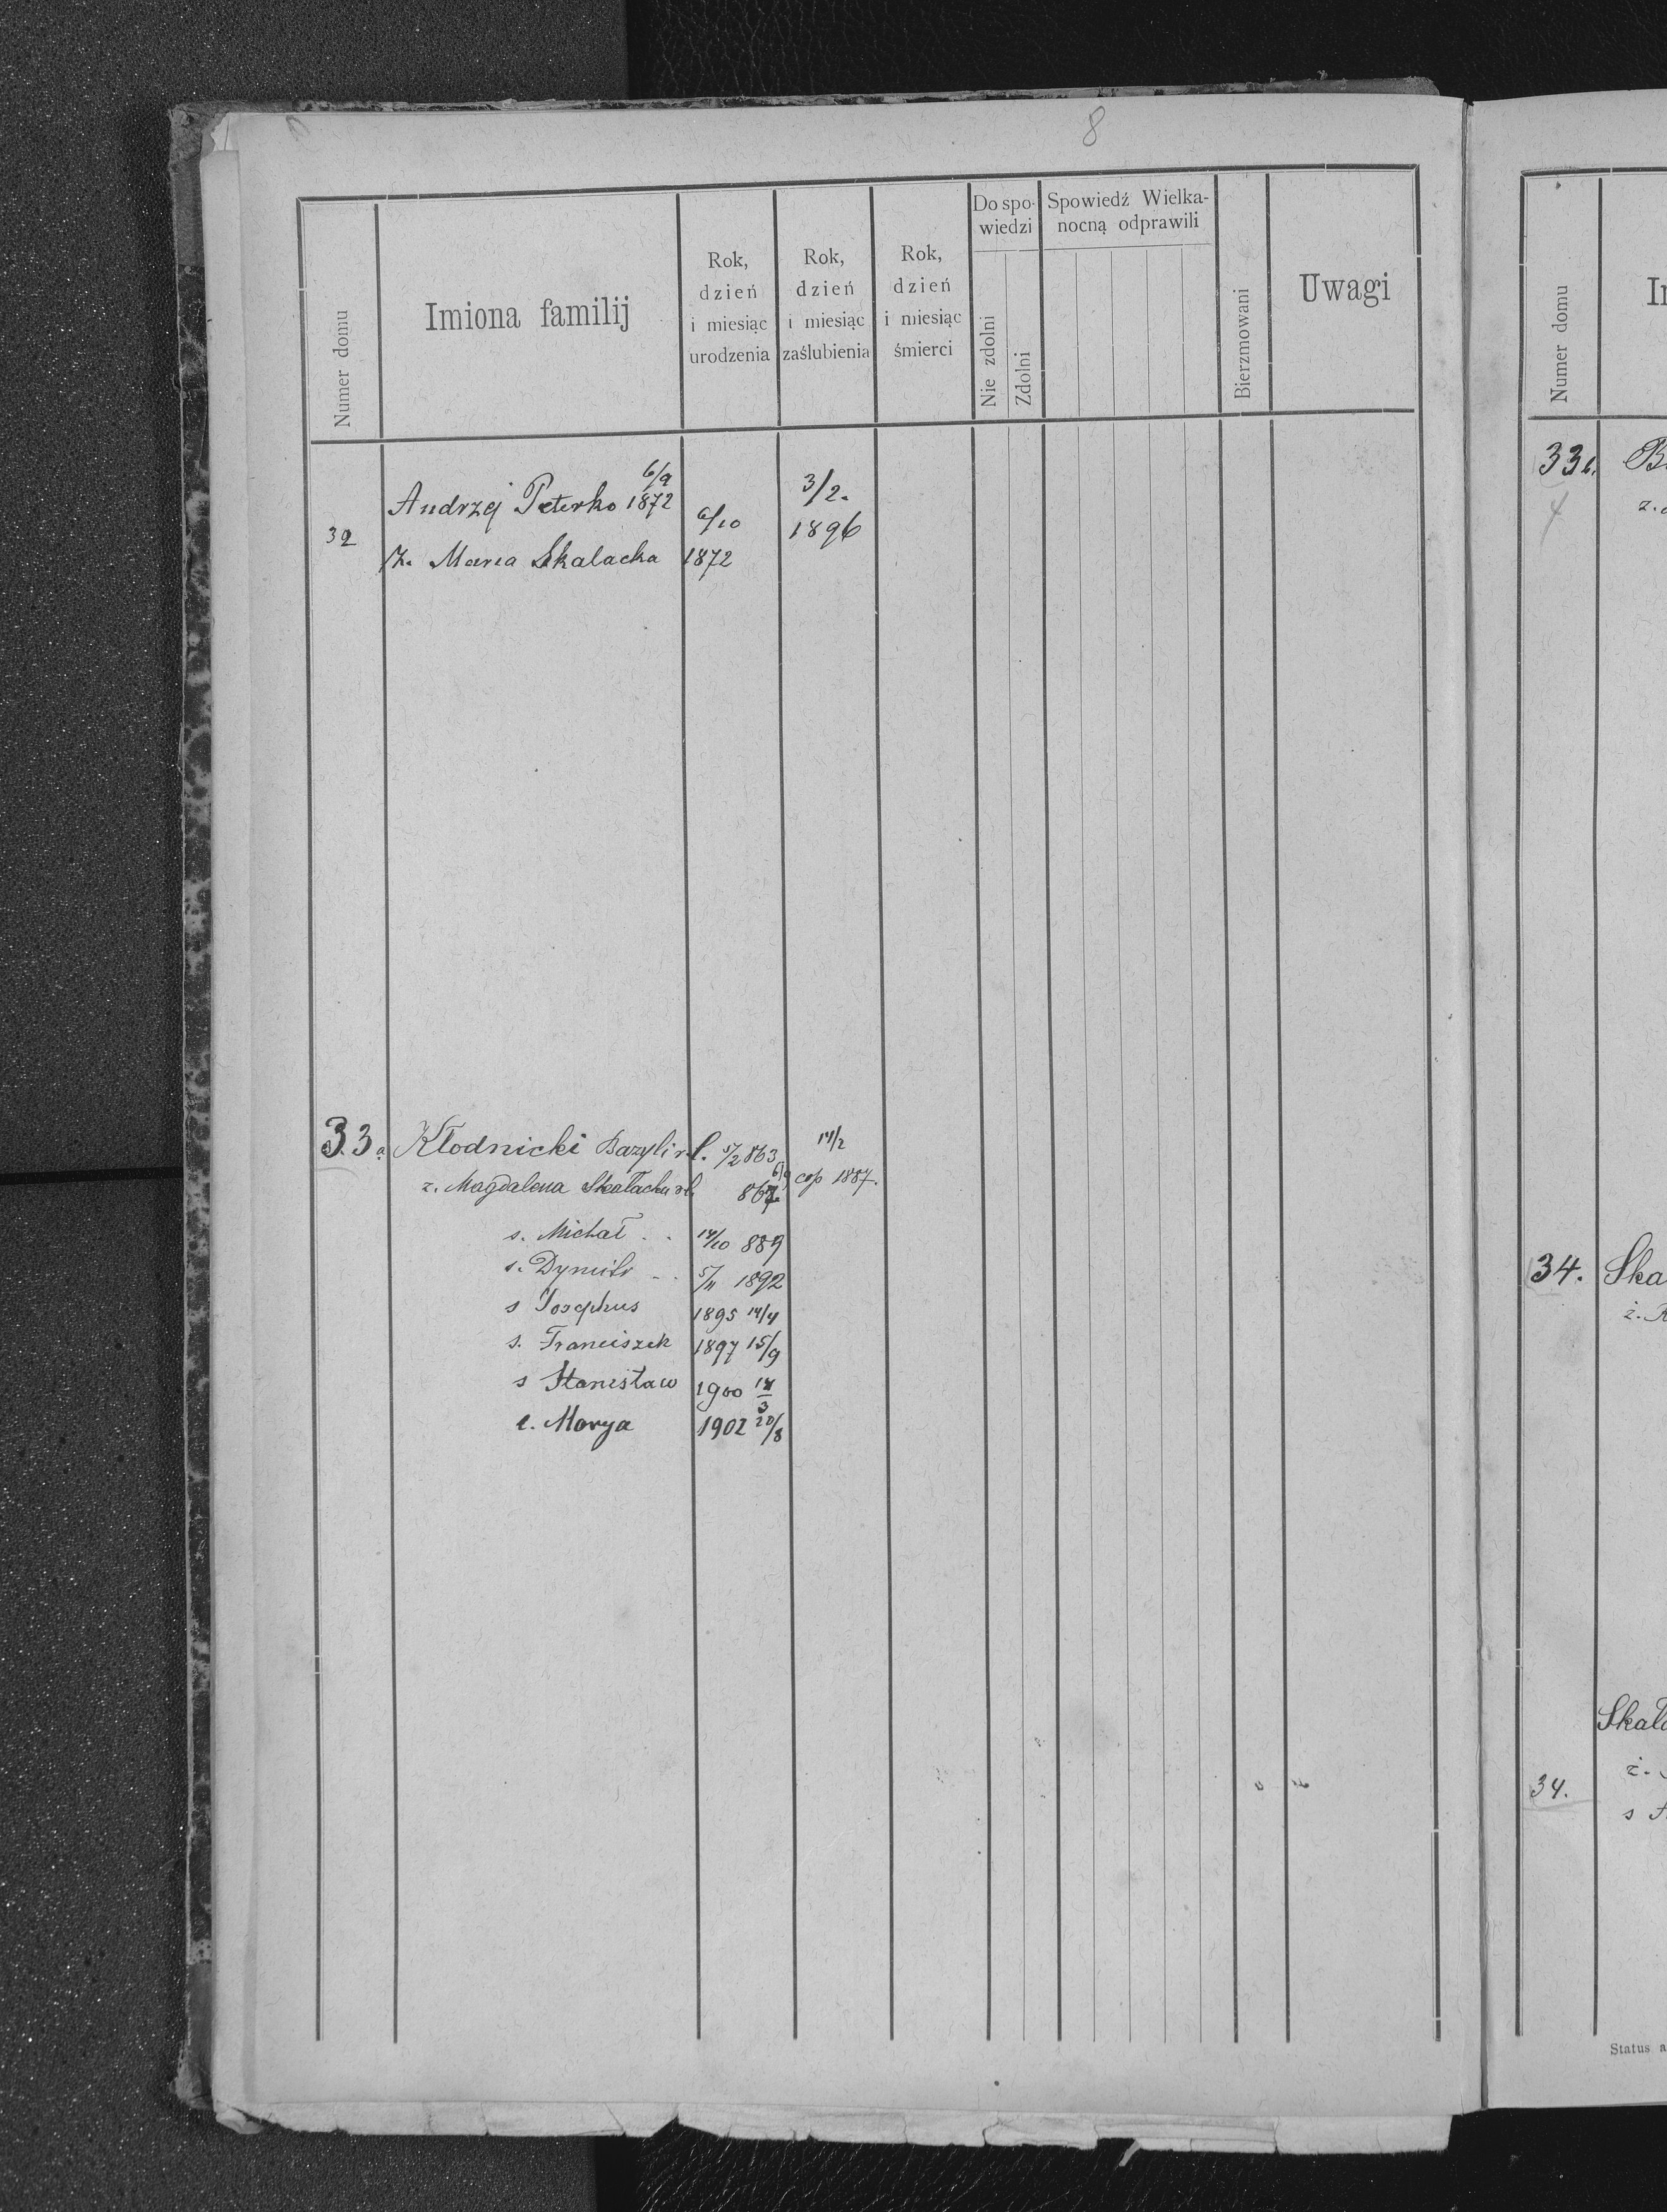 8
Numer domu
Imiona familij
Rok,
dzień
i miesiąc
urodzenia
Rok,
dzień
i miesiąc
zaślubienia
Rok,
dzień
i miesiąc
śmierci
Do spo-
wiedzi
Nie zdolni
Zdolni
Spowiedź Wielka-
nocną odprawili
Bierzmowani
Uwagi
6/9
Andrzej Peterko 1872
32
6/10
3/2.
1896
Ż. Maria Skalacka 1872
33a Kłodnicki Bazyli r.l. 5/2 863 14/2
ż. Magdalena Skałacka rl 867 6/9 cop 1887.
s. Michał . . 14/10 889
s. Dymitr . . 5/11 1892
s Josephus 1895 14/4
s. Franciszek 1897 15/9
s Stanisław 1900 18/3
c. Marya 1902 20/8
Numer domu
33b.
4
ż.
34. Ska
ż. R
Skała
34. ż.
s
Status a